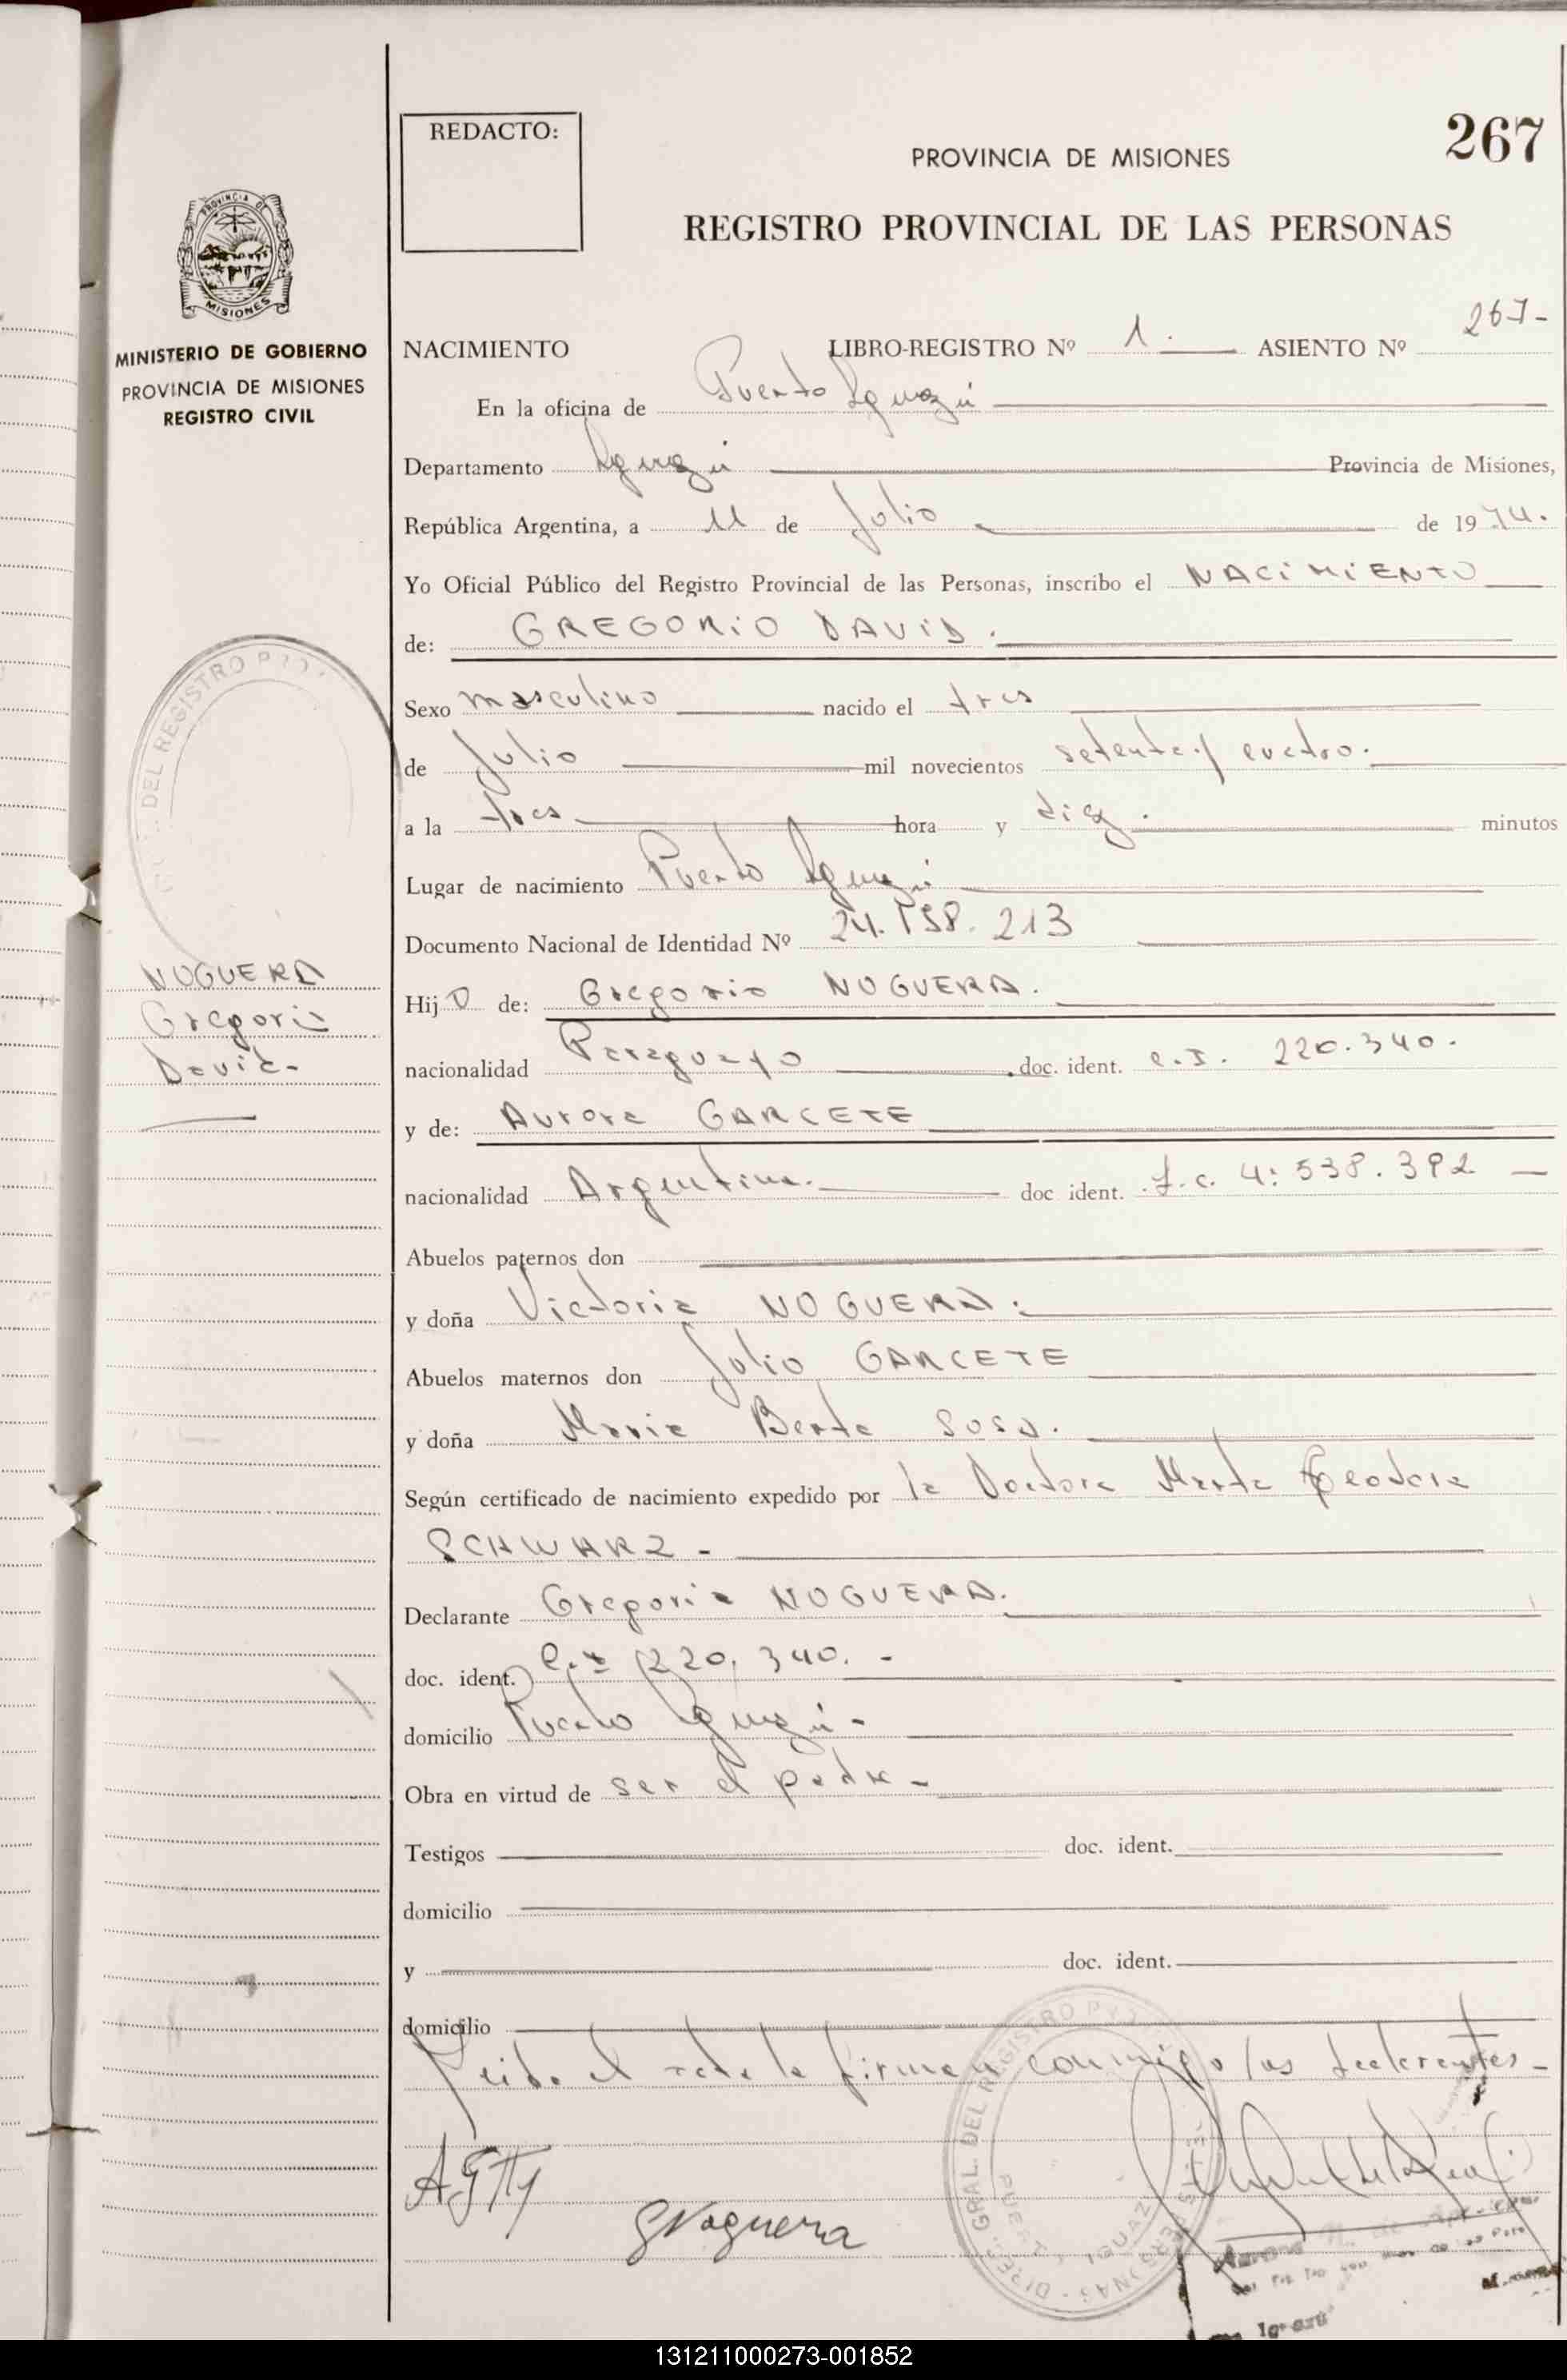 267
REDACTO:
PROVINCIA DE MISIONES
REGISTRO PROVINCIAL DE LAS PERSONAS
PROVINCIA DE
MISIONES
MINISTERIO DE GOBIERNO
PROVINCIA DE MISIONES
REGISTRO CIVIL
NACIMIENTO LIBRO-REGISTRO Nº 1. ASIENTO Nº 267-
En la oficina de Puerto Iguazú
Departamento Iguazú Provincia de Misiones,
República Argentina, a 11 de Julio de 1974.
Yo Oficial Público del Registro Provincial de las Personas, inscribo el NACIMIENTO
de: GREGORIO DAVID.
Sexo masculino nacido el tres
de Julio mil novecientos setenta y cuatro.
a la tres hora y diez. minutos
Lugar de nacimiento Puerto Iguazú
Documento Nacional de Identidad Nº 213
NOGUERA
Gregorio
David-
Hijo de: Gregorio NOGUERA.
nacionalidad Paraguayo doc. ident. C.I. 220.340.
y de: Aurora GARCETE
nacionalidad Argentina. doc ident. L.C. 4:538.392 —
Abuelos paternos don
y doña Victoria NOGUERA.
Abuelos maternos don Julio GARCETE
y doña Maria Berta SOSA.
Según certificado de nacimiento expedido por la Doctora Marta Teodora
SCHWARZ -
Declarante Gregorio NOGUERA.
doc. ident. C.I. 220.340. -
domicilio Puerto Iguazú -
Obra en virtud de ser el padre -
Testigos doc. ident.
domicilio
y doc. ident.
domicilio
Leida el acta la firman conmigo los declarantes -
GNoguera
DEL REGISTRO
DIREC. GRAL. DEL REGISTRO
PUERTO IGUAZU
131211000273-001852